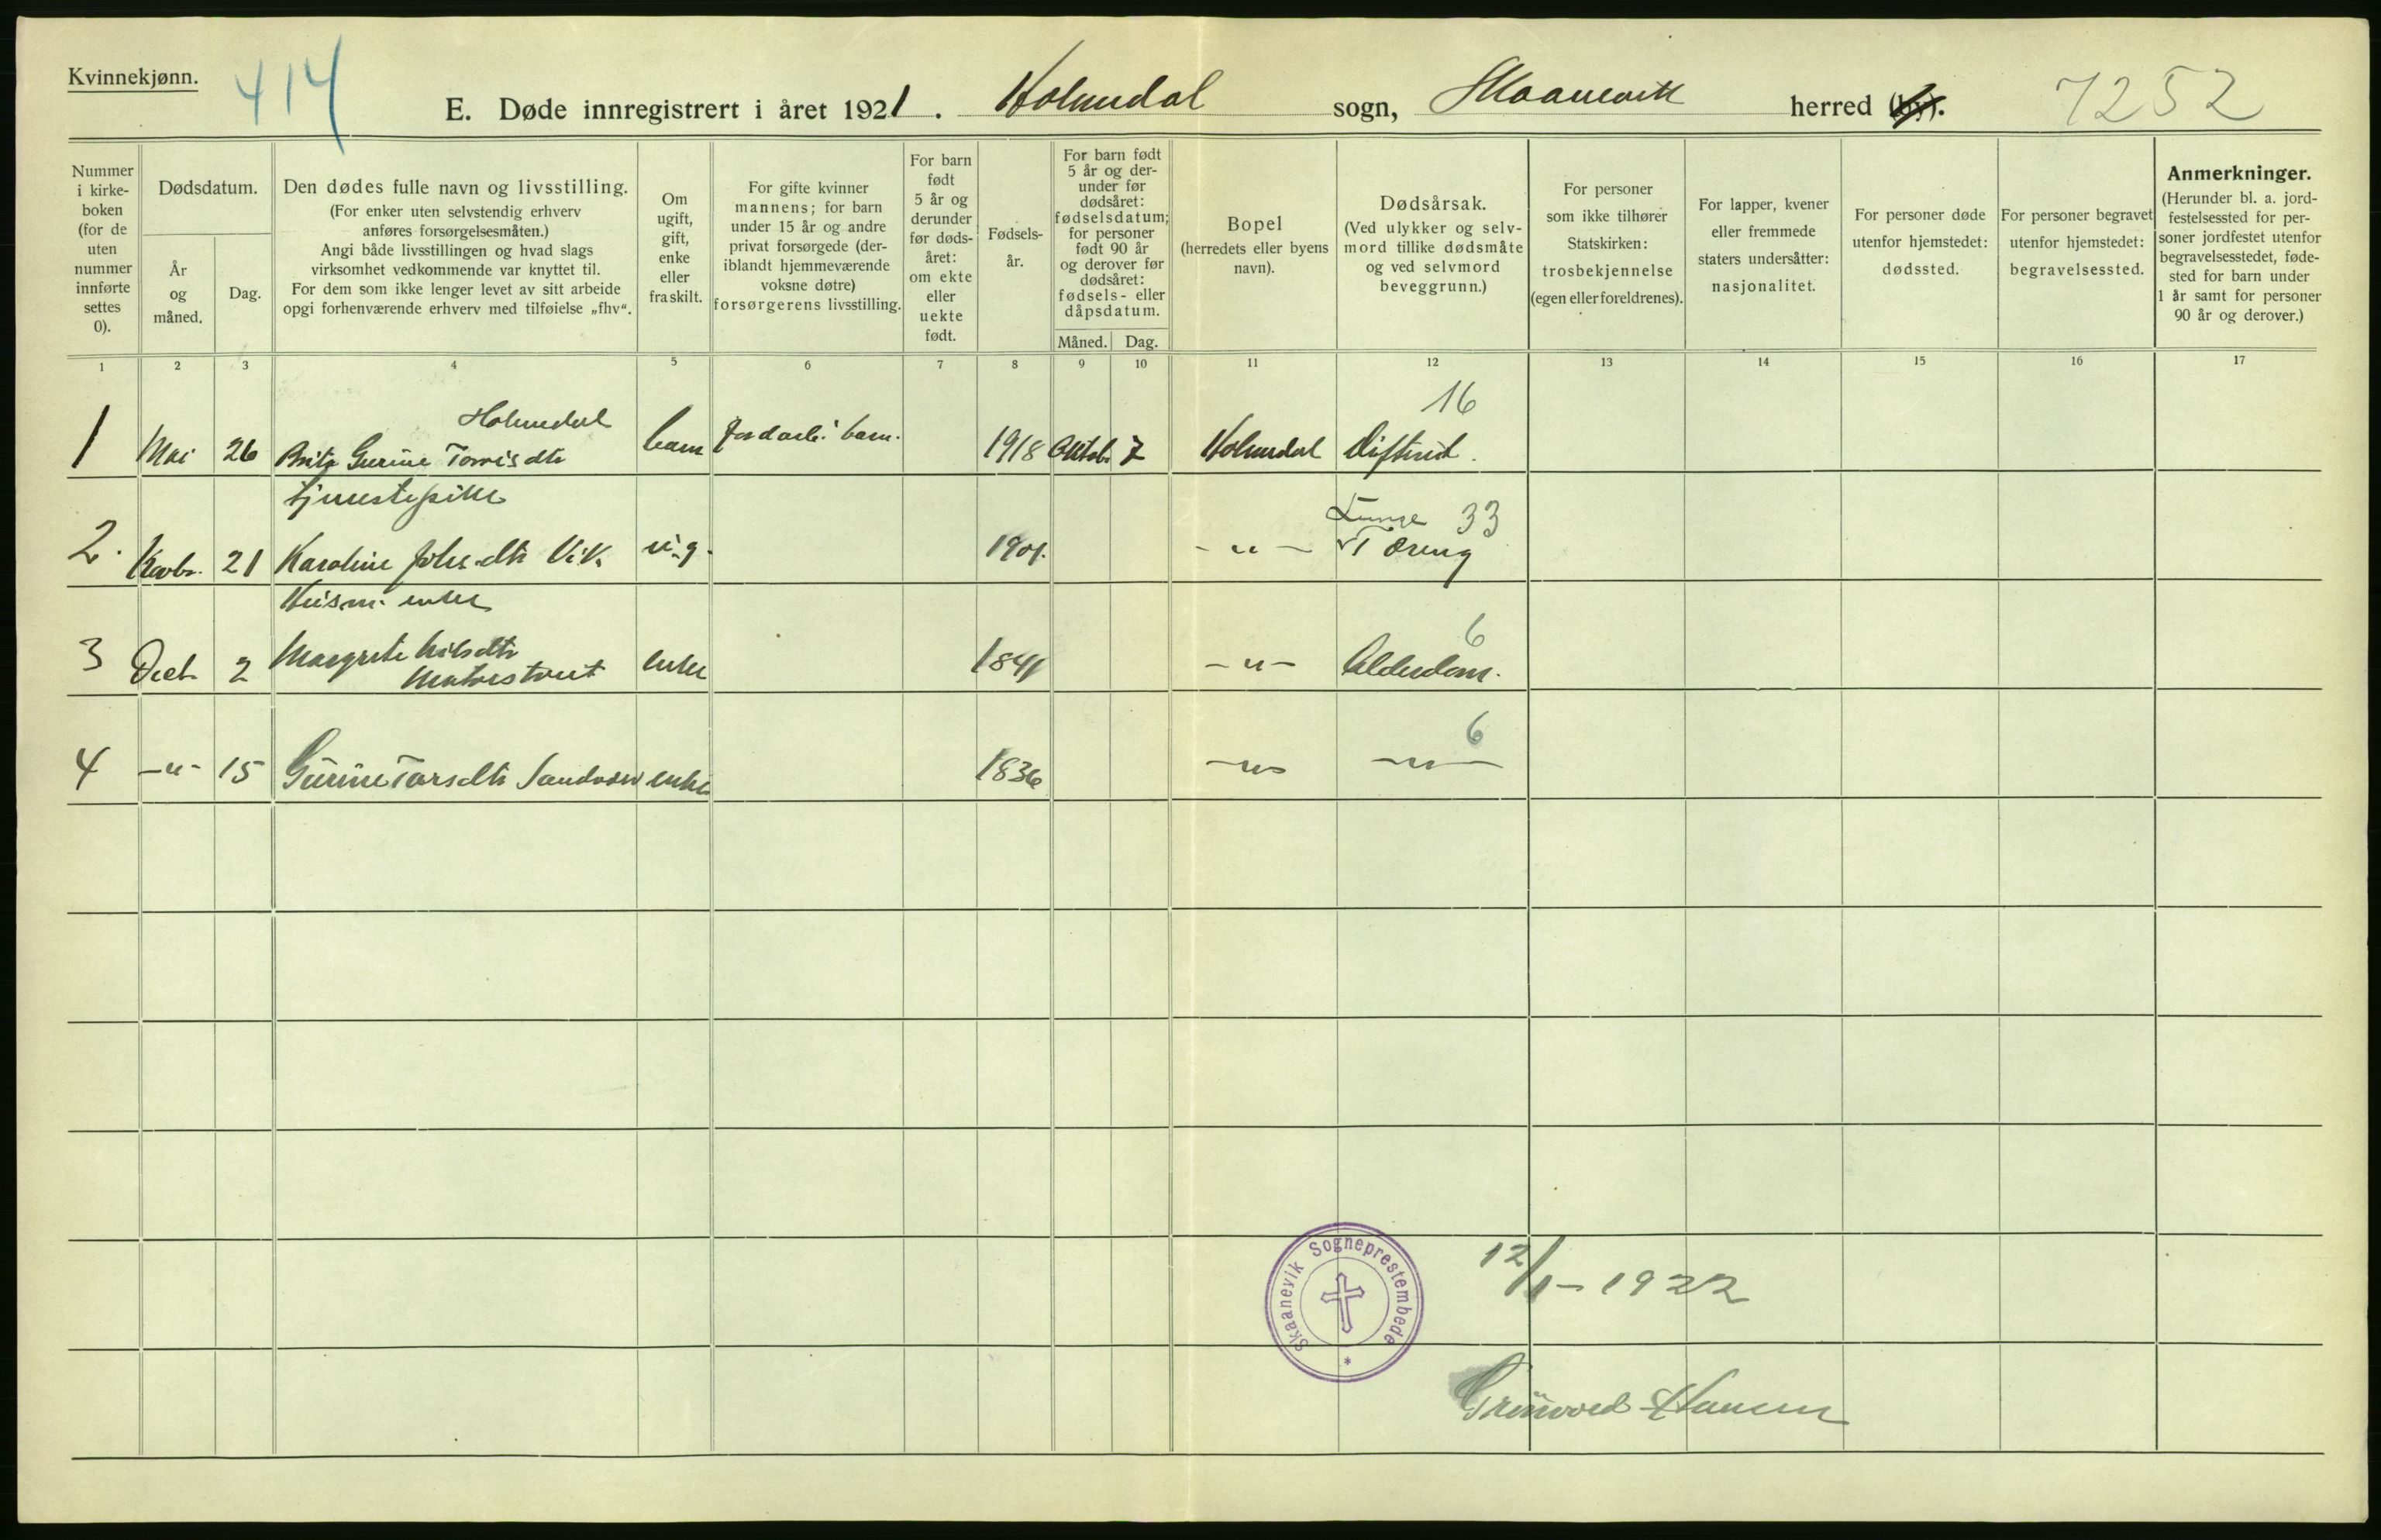 Kvinnekjønn.
414
E. Døde innregistrert i året 1921. Holmedal sogn, Skaanevik herred (by).
7252
Nummer
i kirke-
boken
(for de
uten
nummer
innførte
settes
0).
Dødsdatum.
År
og
måned.
Dag.
Den dødes fulle navn og livsstilling.
(For enker uten selvstendig erhverv
anføres forsørgelsesmåten.)
Angi både livsstillingen og hvad slags
virksomhet vedkommende var knyttet til.
For dem som ikke lenger levet av sitt arbeide
opgi forhenværende erhverv med tilføielse „fhv“.
Om
ugift,
gift,
enke
eller
fraskilt.
For gifte kvinner
mannens; for barn
under 15 år og andre
privat forsørgede (der-
iblandt hjemmeværende
voksne døtre)
forsørgerens livsstilling.
For barn
født
5 år og
derunder
før døds-
året:
om ekte
eller
uekte
født.
Fødsels-
år.
For barn født
5 år og der-
under før
dødsåret:
fødselsdatum;
for personer
født 90 år
og derover før
dødsåret:
fødsels- eller
dåpsdatum.
Måned. Dag.
Bopel
(herredets eller byens
navn).
Dødsårsak.
(Ved ulykker og selv-
mord tillike dødsmåte
og ved selvmord
beveggrunn.)
For personer
som ikke tilhører
Statskirken:
trosbekjennelse
(egen eller foreldrenes).
For lapper, kvener
eller fremmede
staters undersåtter:
nasjonalitet.
For personer døde
utenfor hjemstedet:
dødssted.
For personer begravet
utenfor hjemstedet:
begravelsessted.
Anmerkninger.
(Herunder bl. a. jord-
festelsessted for per-
soner jordfestet utenfor
begravelsesstedet, føde-
sted for barn under
1 år samt for personer
90 år og derover.)
1 2 3 4 5 6 7 8 9 10 11 12 13 14 15 16 17
Holmedal 16
1 Mai 26 Brita Gurine Torrisdtr barn barn. 1918 Oktob. 7 Holmedal Difterit.
tjenestepike Lunge 33
2. Novbr. 21 Karoline Johsdtr Vik ug. 1901. -"- Tæring
Husm. enke 6
3 Decb. 2 Margrete Nilsdtr enke 1841 -"- Alderdom.
6
4 -"- 15 Gurine Larsdtr enke 1836 -"- -"-
Skaanevik Sogneprestembede
12/1-1922
Grünvold-Hansen